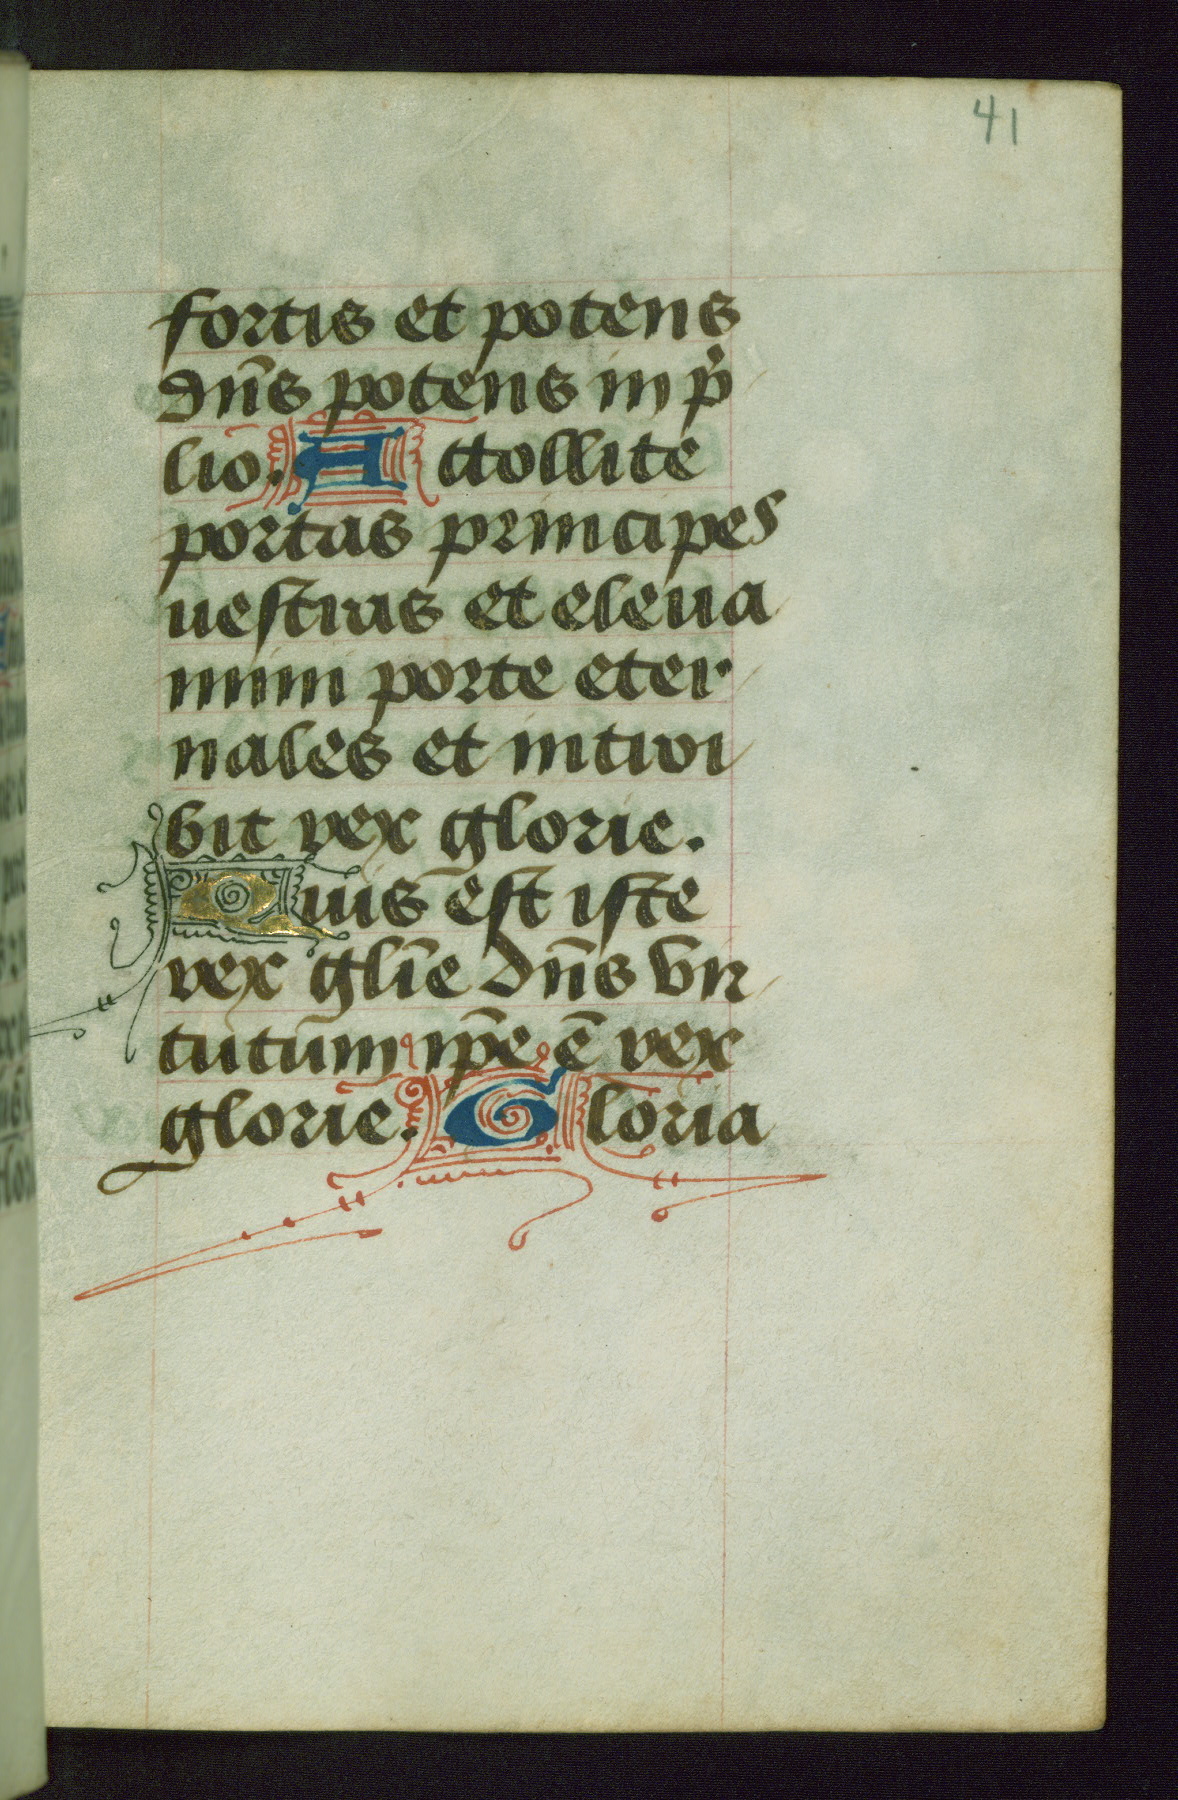 41
fortis et potens
dn̄s potens in p̄
lio. Attollite
portas principes
uestras et eleua
mini porte eter
nales et introi
bit rex glorie.
Quis est iste
rex glīe dn̄s vir
tutum ip̄e ē rex
glorie. Gloria